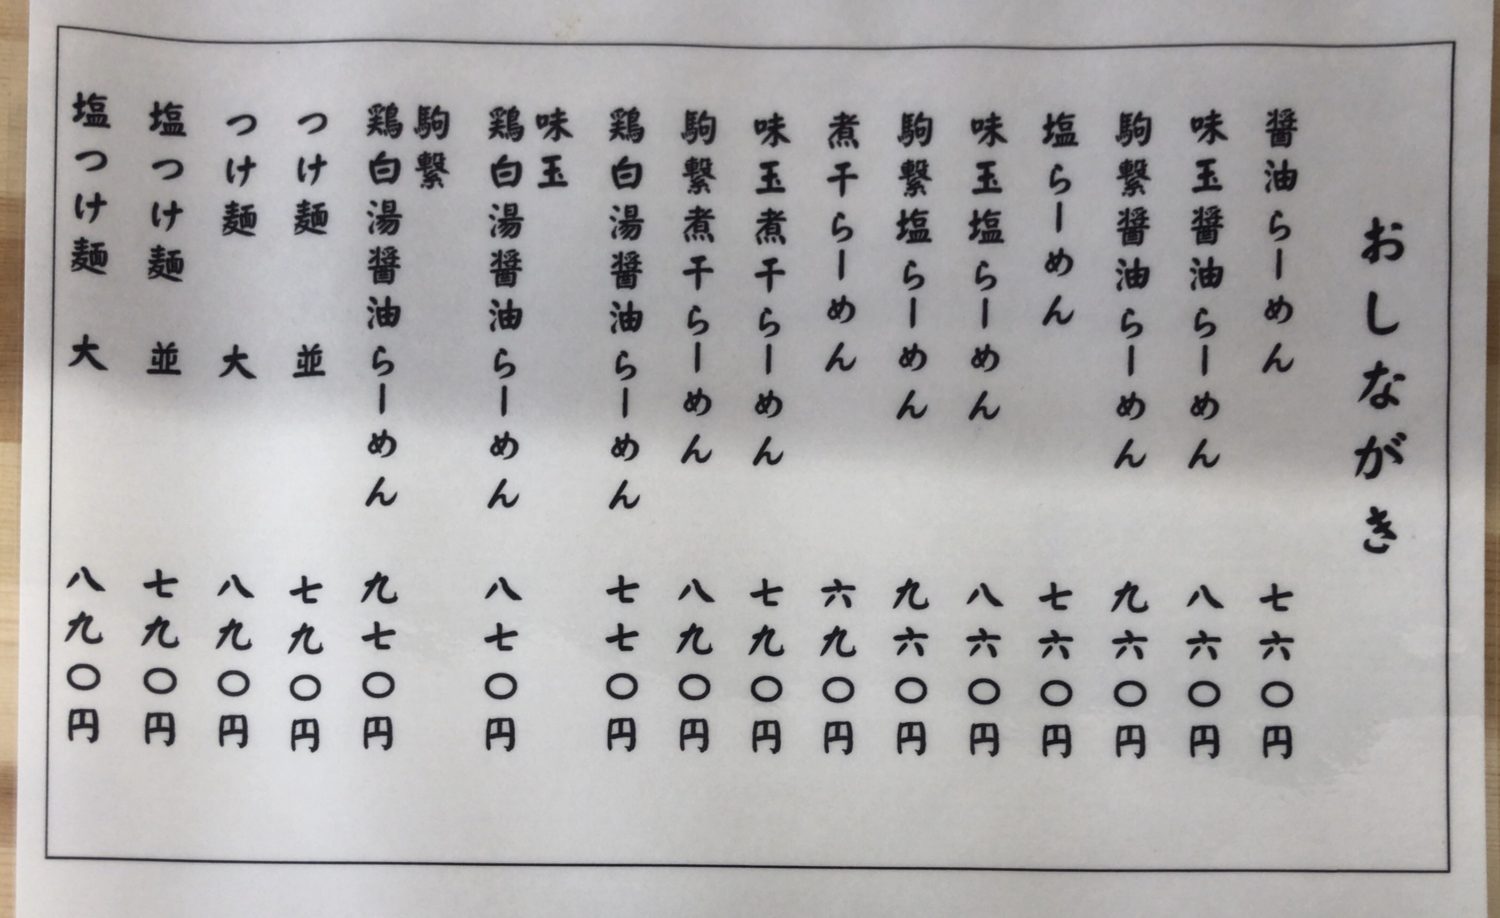 おしながき
醤油らーめん 七六〇円
味玉醤油らーめん 八六〇円
駒繋醤油らーめん 九六〇円
塩らーめん 七六〇円
味玉塩らーめん 八六〇円
駒繋塩らーめん 九六〇円
煮干らーめん 六九〇円
味玉煮干らーめん 七九〇円
駒繋煮干らーめん 八九〇円
鶏白湯醤油らーめん 七七〇円
味玉
鶏白湯醤油らーめん 八七〇円
駒繋
鶏白湯醤油らーめん 九七〇円
つけ麺 並 七九〇円
つけ麺 大 八九〇円
塩つけ麺 並 七九〇円
塩つけ麺 大 八九〇円